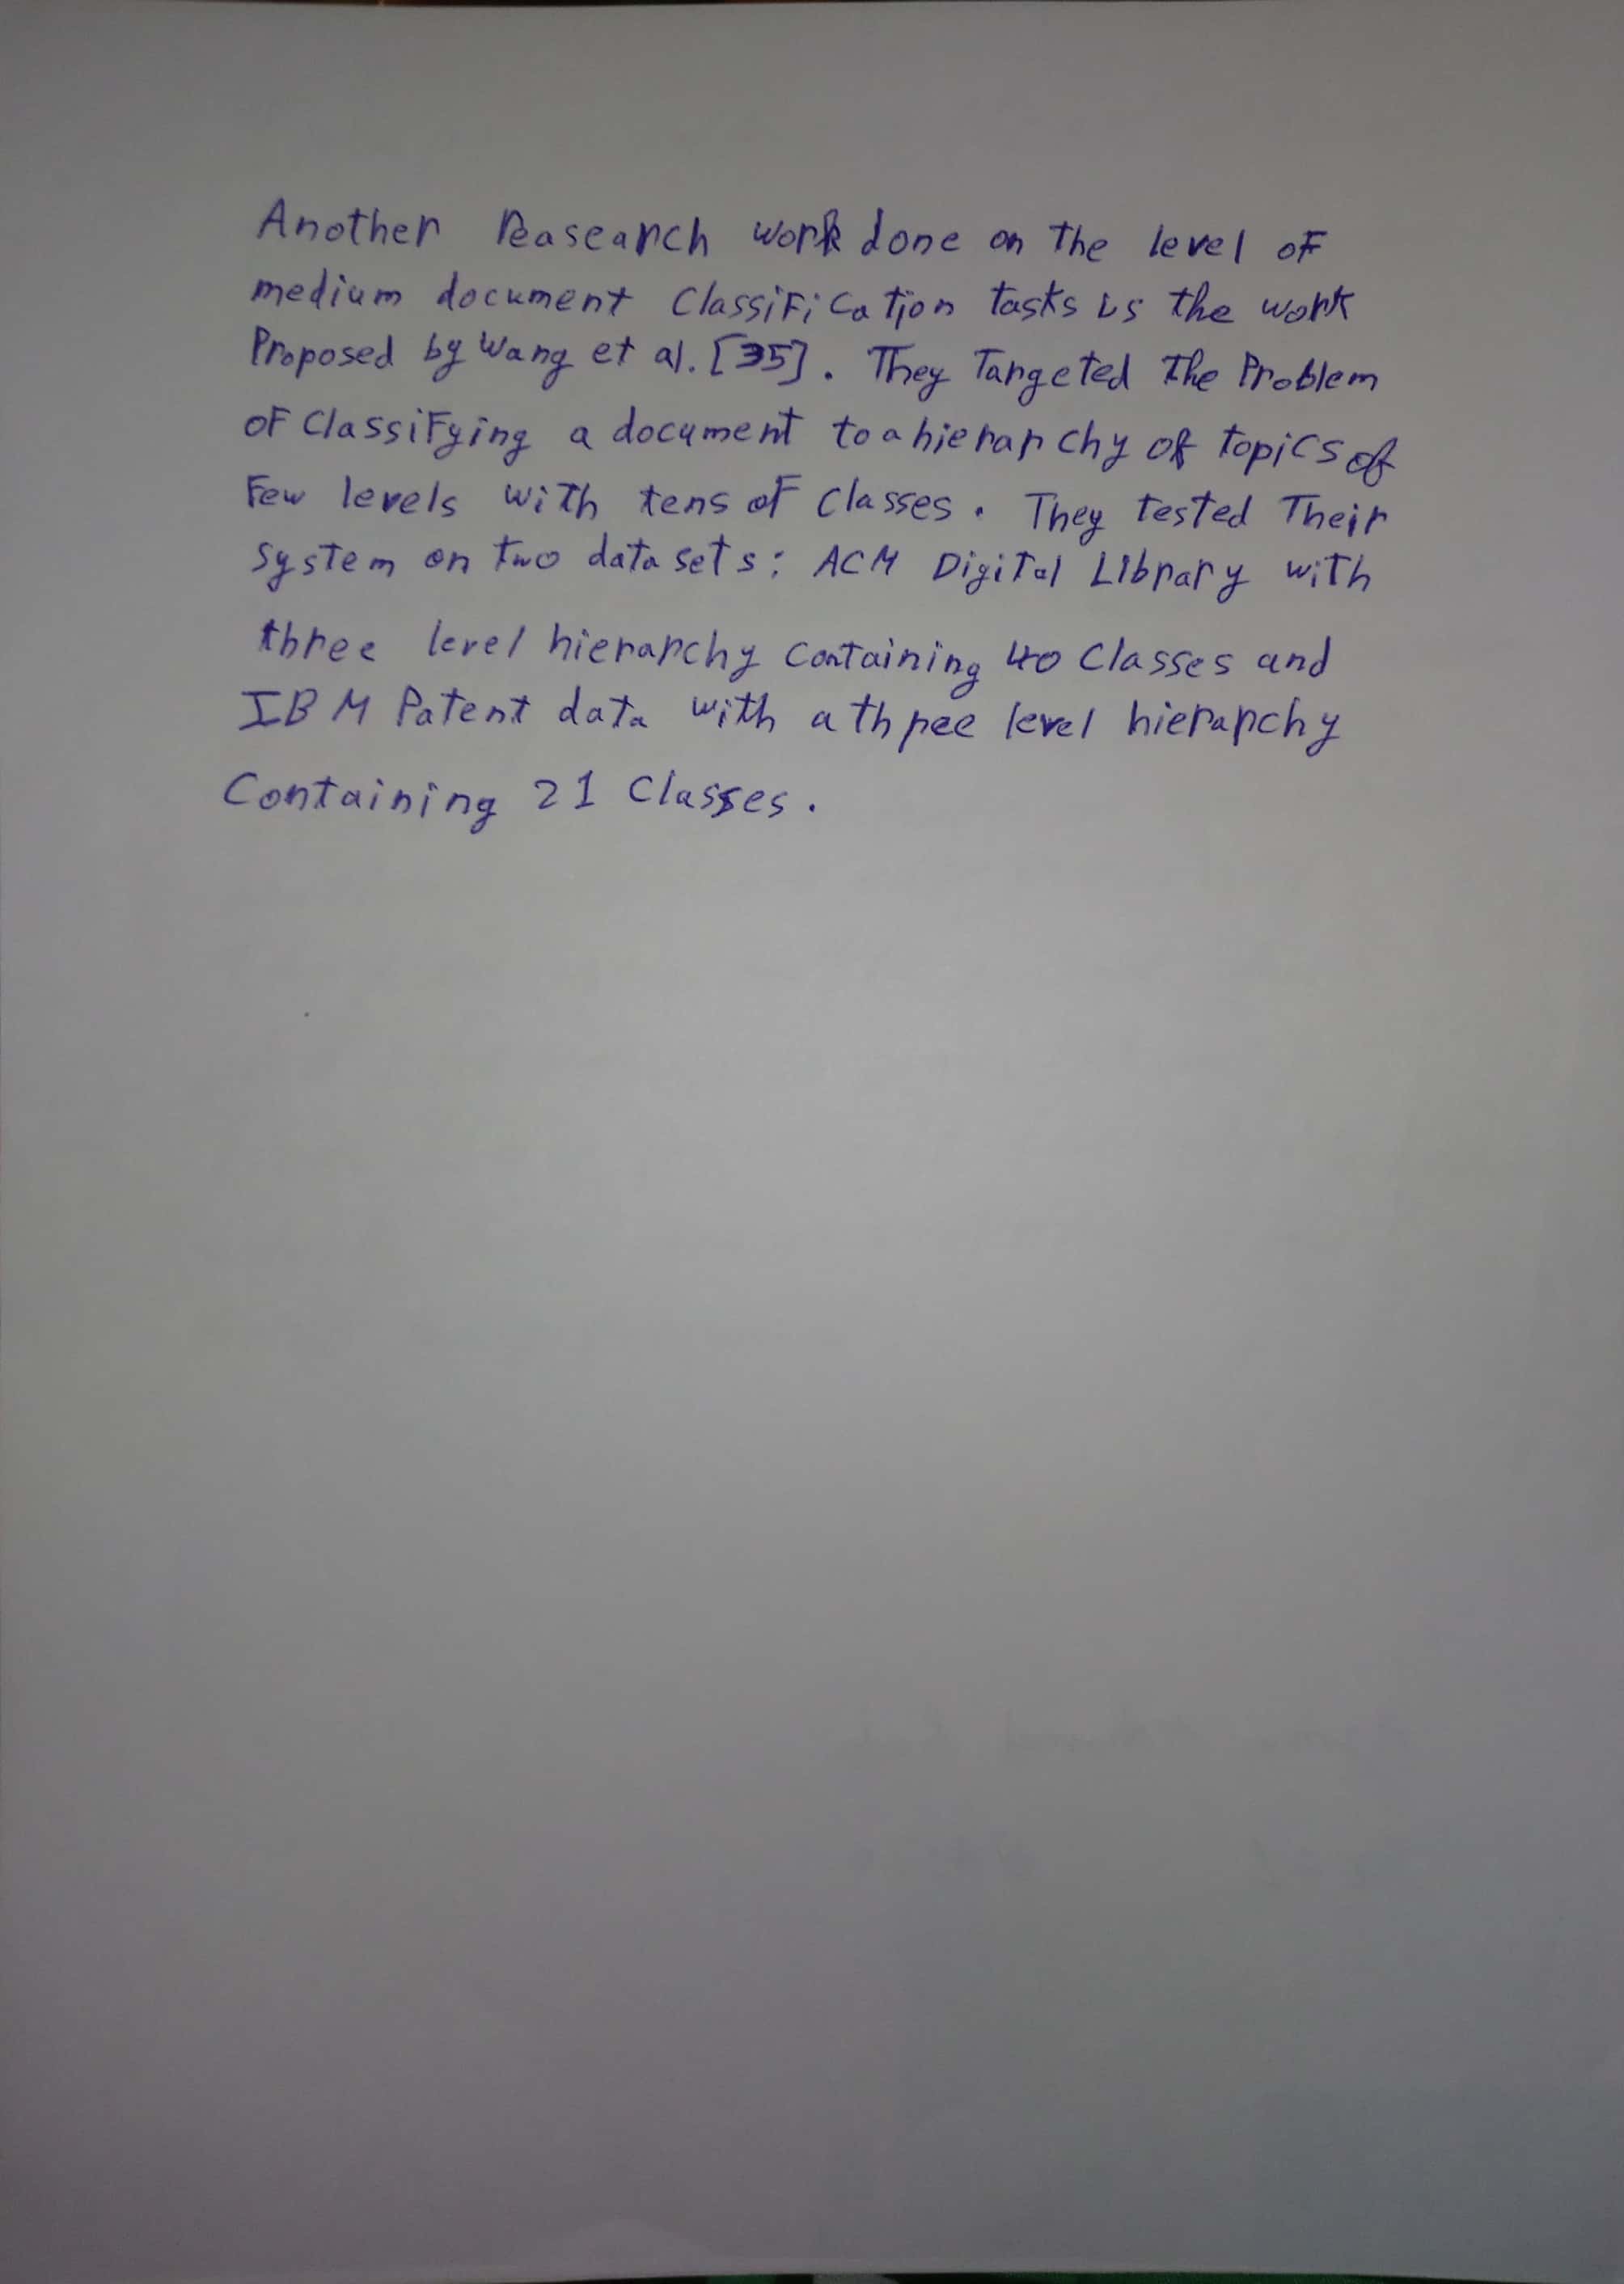 Another Reasearch work done on The level oF
medium document ClassiFication tasks is the work
Proposed by Wang et al. [35]. They Targeted The Problem
oF ClassiFying a document to a hierarchy of topics of
Few levels with tens oF classes. They tested Their
system on two data sets: ACM Digital Library with
three level hierarchy containing 40 Classes and
IBM Patent data with a three level hierarchy
Containing 21 Classes.